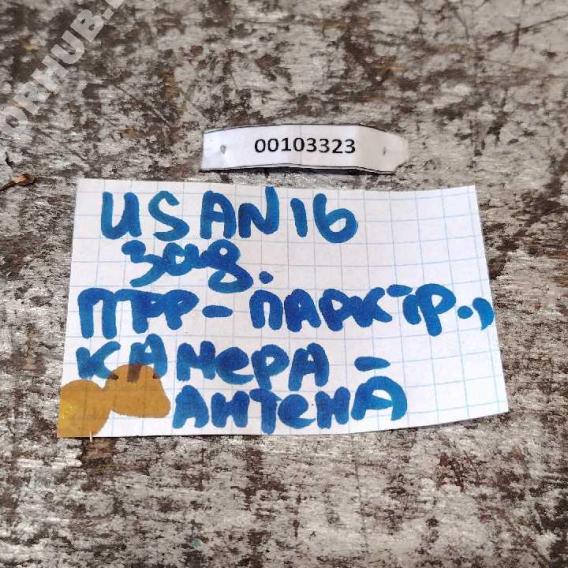 00103323
USAN16
зад.
ПТР-ПАРК-ТР.,
КАМЕРА-
АНТЕНА